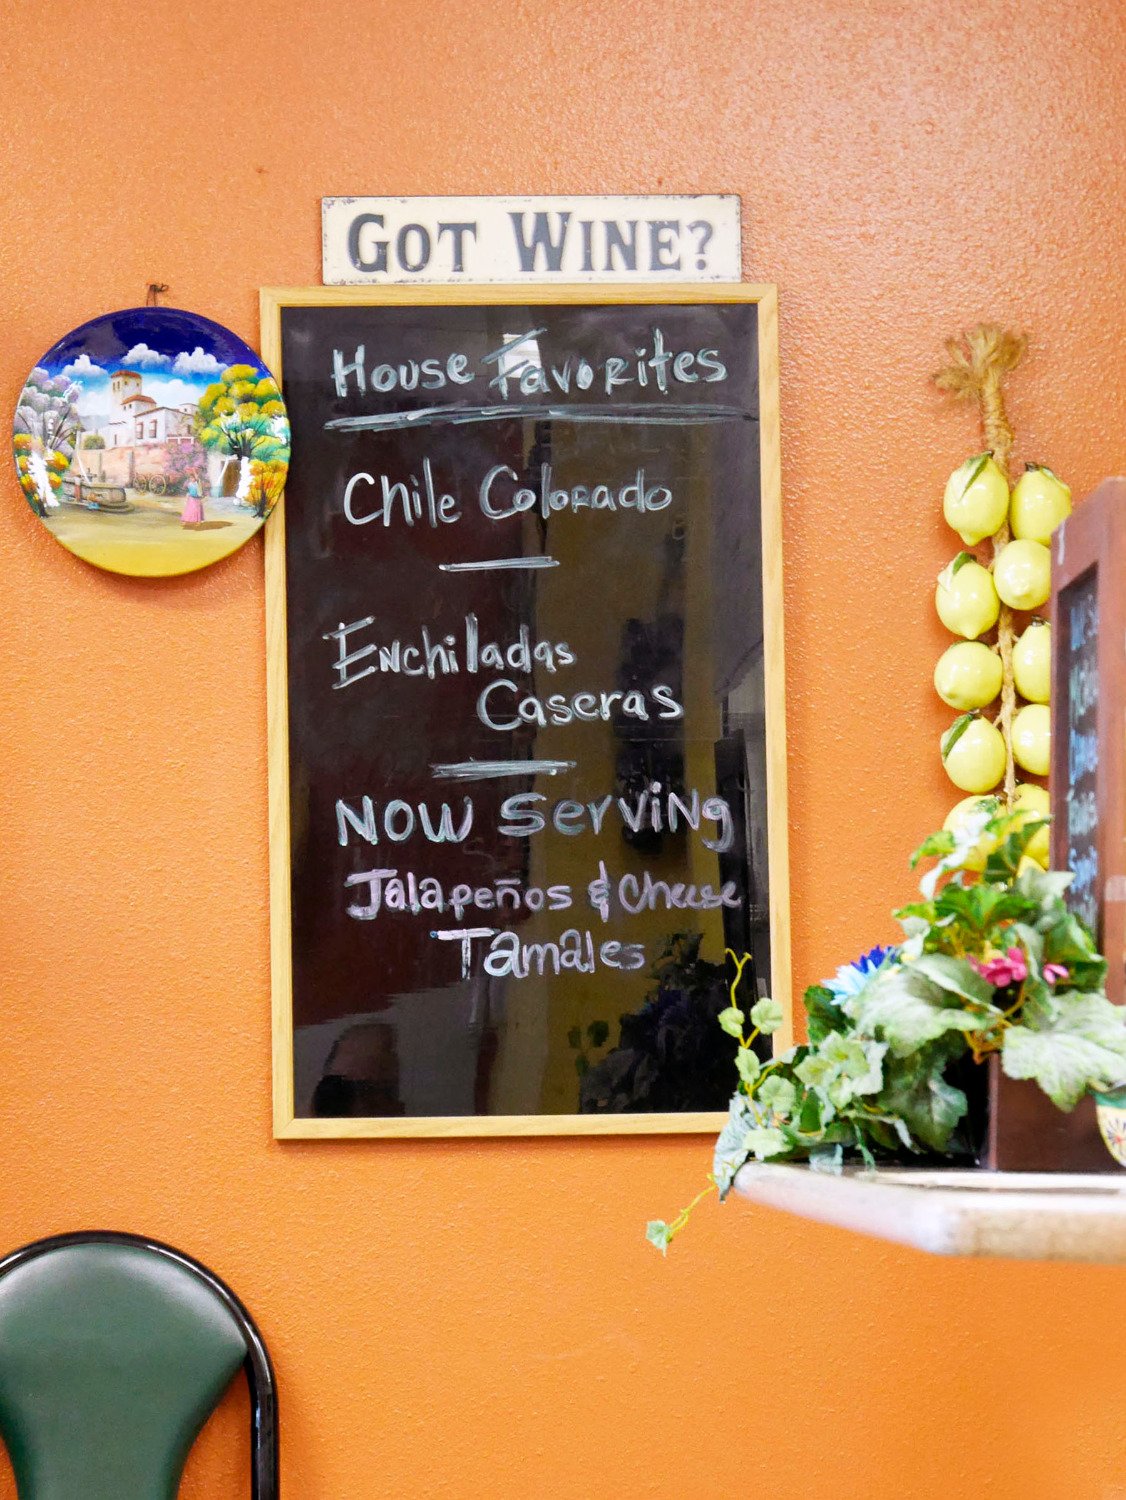 GOT WINE?
House Favorites
Chile Colorado
Enchiladas
Caseras
NOW Serving
Jalapeños & Cheese
Tamales